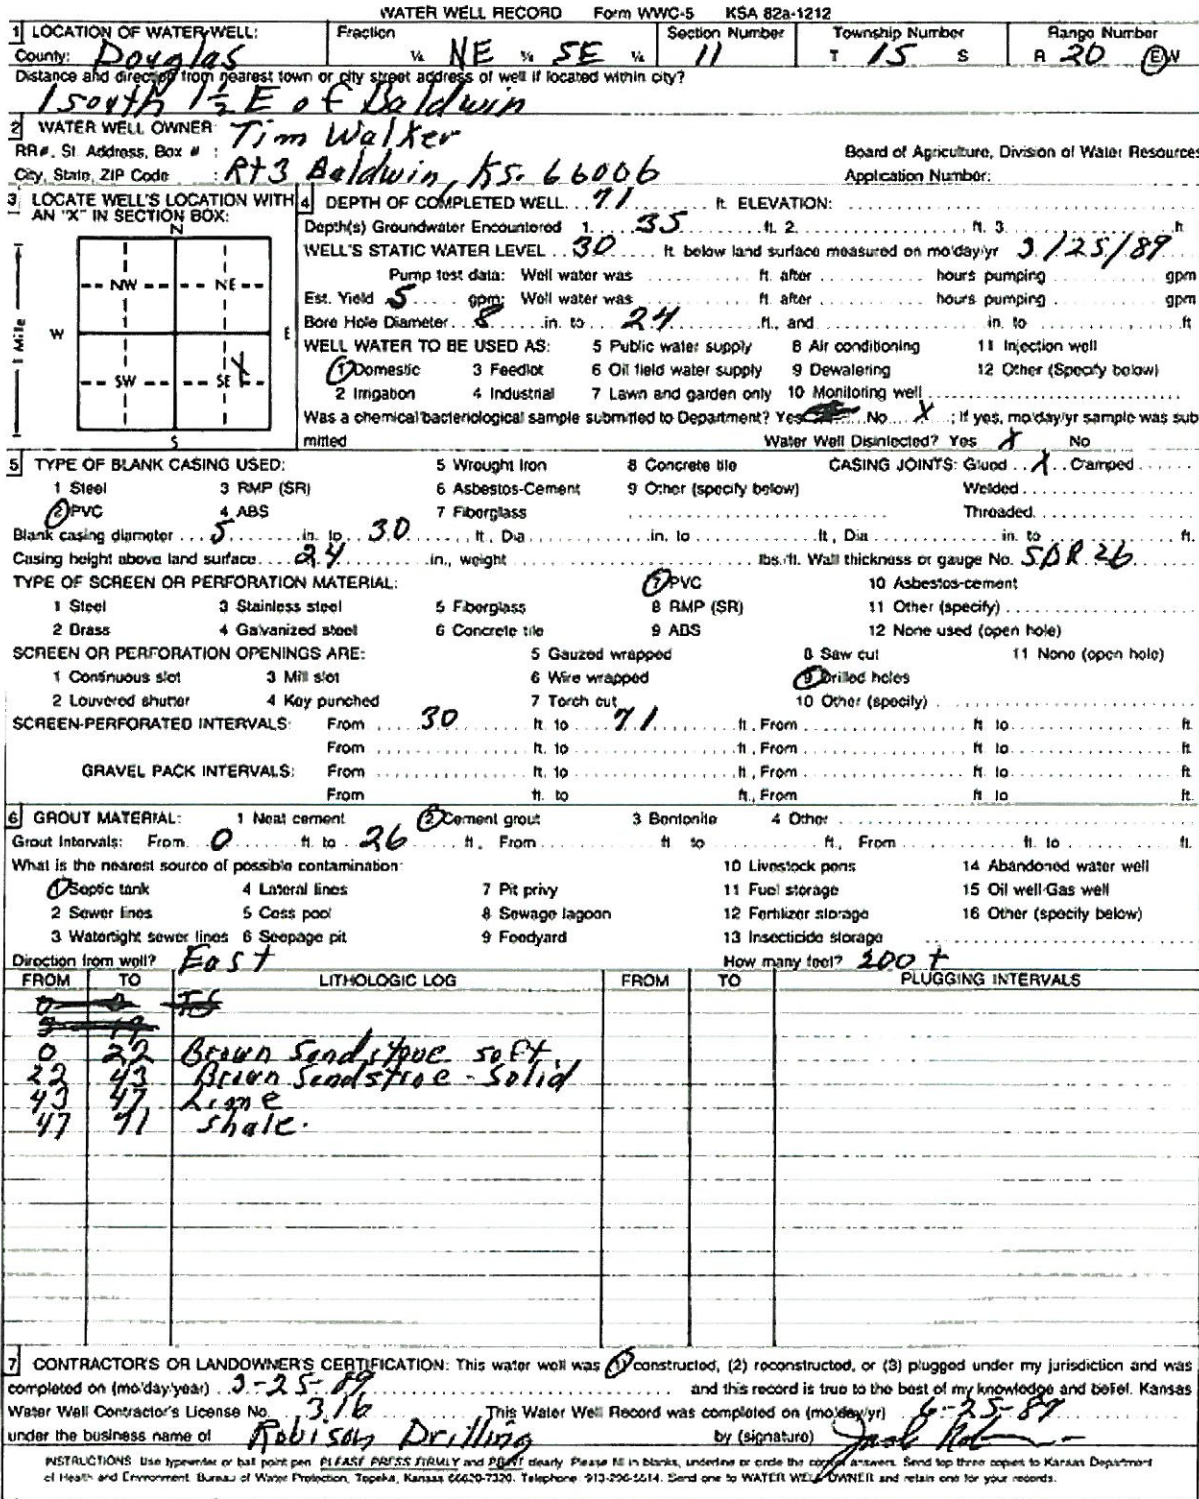 WATER WELL RECORD Form WWC-5 KSA 82a-1212
1 LOCATION OF WATER WELL: Fraction Section Number Township Number Range Number
County: Douglas ¼ NE ¼ SE ¼ 11 T 15 S R 20 E/W
Distance and direction from nearest town or city street address of well if located within city?
1 south 1½ E of Baldwin
2 WATER WELL OWNER: Tim Walker
RR#, St. Address, Box # : Board of Agriculture, Division of Water Resources
City, State, ZIP Code : Rt 3 Baldwin, Ks. 66006 Application Number:
3 LOCATE WELL'S LOCATION WITH AN "X" IN SECTION BOX:
N
NW NE
W E
SW SE X
S
1 Mile
4 DEPTH OF COMPLETED WELL... 71 ft. ELEVATION:
Depth(s) Groundwater Encountered 1. 35 ft. 2. ft. 3. ft
WELL'S STATIC WATER LEVEL 30 ft. below land surface measured on mo/day/yr 3/25/89
Pump test data: Well water was ft. after hours pumping gpm
Est. Yield 5 gpm: Well water was ft. after hours pumping gpm
Bore Hole Diameter 8 in. to 24 ft., and in. to ft
WELL WATER TO BE USED AS: 5 Public water supply 8 Air conditioning 11 Injection well
1 Domestic 3 Feedlot 6 Oil field water supply 9 Dewatering 12 Other (Specify below)
2 Irrigation 4 Industrial 7 Lawn and garden only 10 Monitoring well
Was a chemical/bacteriological sample submitted to Department? Yes No X ; If yes, mo/day/yr sample was sub
mitted Water Well Disinfected? Yes X No
5 TYPE OF BLANK CASING USED: 5 Wrought Iron 8 Concrete tile CASING JOINTS: Glued X Clamped
1 Steel 3 RMP (SR) 6 Asbestos-Cement 9 Other (specify below) Welded
2 PVC 4 ABS 7 Fiberglass Threaded
Blank casing diameter 5 in. to 30 ft., Dia in. to ft., Dia in. to ft.
Casing height above land surface 24 in., weight lbs./ft. Wall thickness or gauge No. SDR 26
TYPE OF SCREEN OR PERFORATION MATERIAL: 7 PVC 10 Asbestos-cement
1 Steel 3 Stainless steel 5 Fiberglass 8 RMP (SR) 11 Other (specify)
2 Brass 4 Galvanized steel 6 Concrete tile 9 ABS 12 None used (open hole)
SCREEN OR PERFORATION OPENINGS ARE: 5 Gauzed wrapped 8 Saw cut 11 None (open hole)
1 Continuous slot 3 Mill slot 6 Wire wrapped 9 Drilled holes
2 Louvered shutter 4 Key punched 7 Torch cut 10 Other (specify)
SCREEN-PERFORATED INTERVALS: From 30 ft. to 71 ft., From ft. to ft.
From ft. to ft., From ft. to ft.
GRAVEL PACK INTERVALS: From ft. to ft., From ft. to ft.
From ft. to ft., From ft. to ft.
6 GROUT MATERIAL: 1 Neat cement 2 Cement grout 3 Bentonite 4 Other
Grout Intervals: From 0 ft. to 26 ft., From ft. to ft., From ft. to ft.
What is the nearest source of possible contamination: 10 Livestock pens 14 Abandoned water well
1 Septic tank 4 Lateral lines 7 Pit privy 11 Fuel storage 15 Oil well/Gas well
2 Sewer lines 5 Cess pool 8 Sewage lagoon 12 Fertilizer storage 16 Other (specify below)
3 Watertight sewer lines 6 Seepage pit 9 Feedyard 13 Insecticide storage
Direction from well? East How many feet? 200 +
FROM TO LITHOLOGIC LOG FROM TO PLUGGING INTERVALS
0 22 Brown Sandstone soft
22 43 Brown Sandstroe - Solid
43 47 Lime
47 71 Shale.
7 CONTRACTOR'S OR LANDOWNER'S CERTIFICATION: This water well was (1) constructed, (2) reconstructed, or (3) plugged under my jurisdiction and was
completed on (mo/day/year) 3-25-89 and this record is true to the best of my knowledge and belief. Kansas
Water Well Contractor's License No. 316 This Water Well Record was completed on (mo/day/yr) 6-25-89
under the business name of Robison Drilling by (signature)
INSTRUCTIONS: Use typewriter or ball point pen. PLEASE PRESS FIRMLY and PRINT clearly. Please fill in blanks, underline or circle the correct answers. Send top three copies to Kansas Department
of Health and Environment, Bureau of Water Protection, Topeka, Kansas 66620-7320, Telephone: 913-296-5514. Send one to WATER WELL OWNER and retain one for your records.